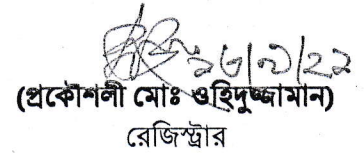 ২৬/০১/২২
(প্রকৌশলী মোঃ ওহিদুজ্জামান)
রেজিস্ট্রার